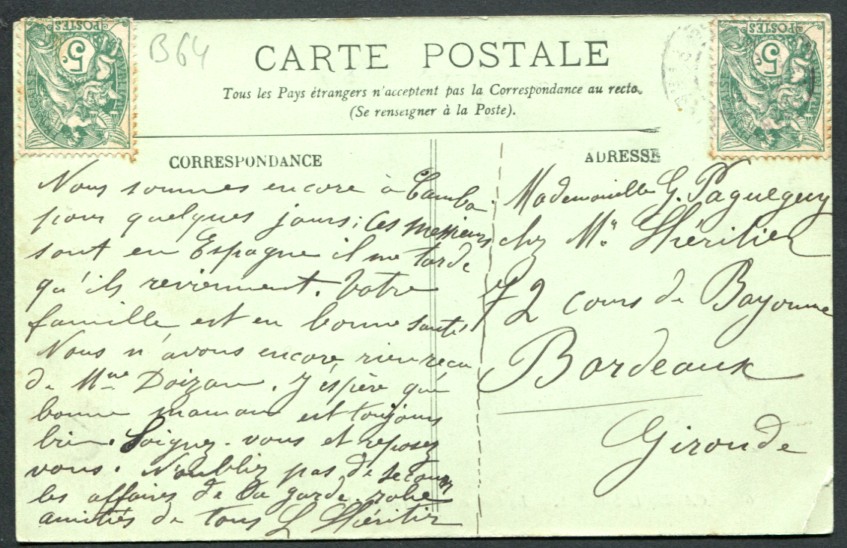 B64
CARTE POSTALE
Tous les Pays étrangers n'acceptent pas la Correspondance au recto.
(Se renseigner à la Poste).
CORRESPONDANCE
Nous sommes encore à Cambo
pour quelques jours; ces messieurs
sont en Espagne il me tarde
qu'ils reviennent. Votre
famille est en bonne santé
Nous n'avons encore rien reçu
de Mme Doizan. J'espère que
bonne maman est toujours
bien. Soignez-vous et reposez
vous. N'oubliez pas de secouer
les affaires de la garde-robe
amitiés de tous L Lhéritier
ADRESSE
Mademoiselle G.
chez Mr Lhéritier
72 cours de Bayonne
Bordeaux
Gironde
POSTES
5c
POSTES
5c